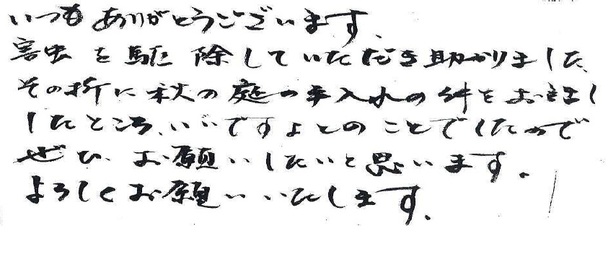 いつもありがとうございます。
害虫を駆除していただき助かりました
その折に秋の庭の手入れの件をお話し
したところ、いいですよとのことでしたので
ぜひ、お願いしたいと思います。
よろしくお願いいたします。